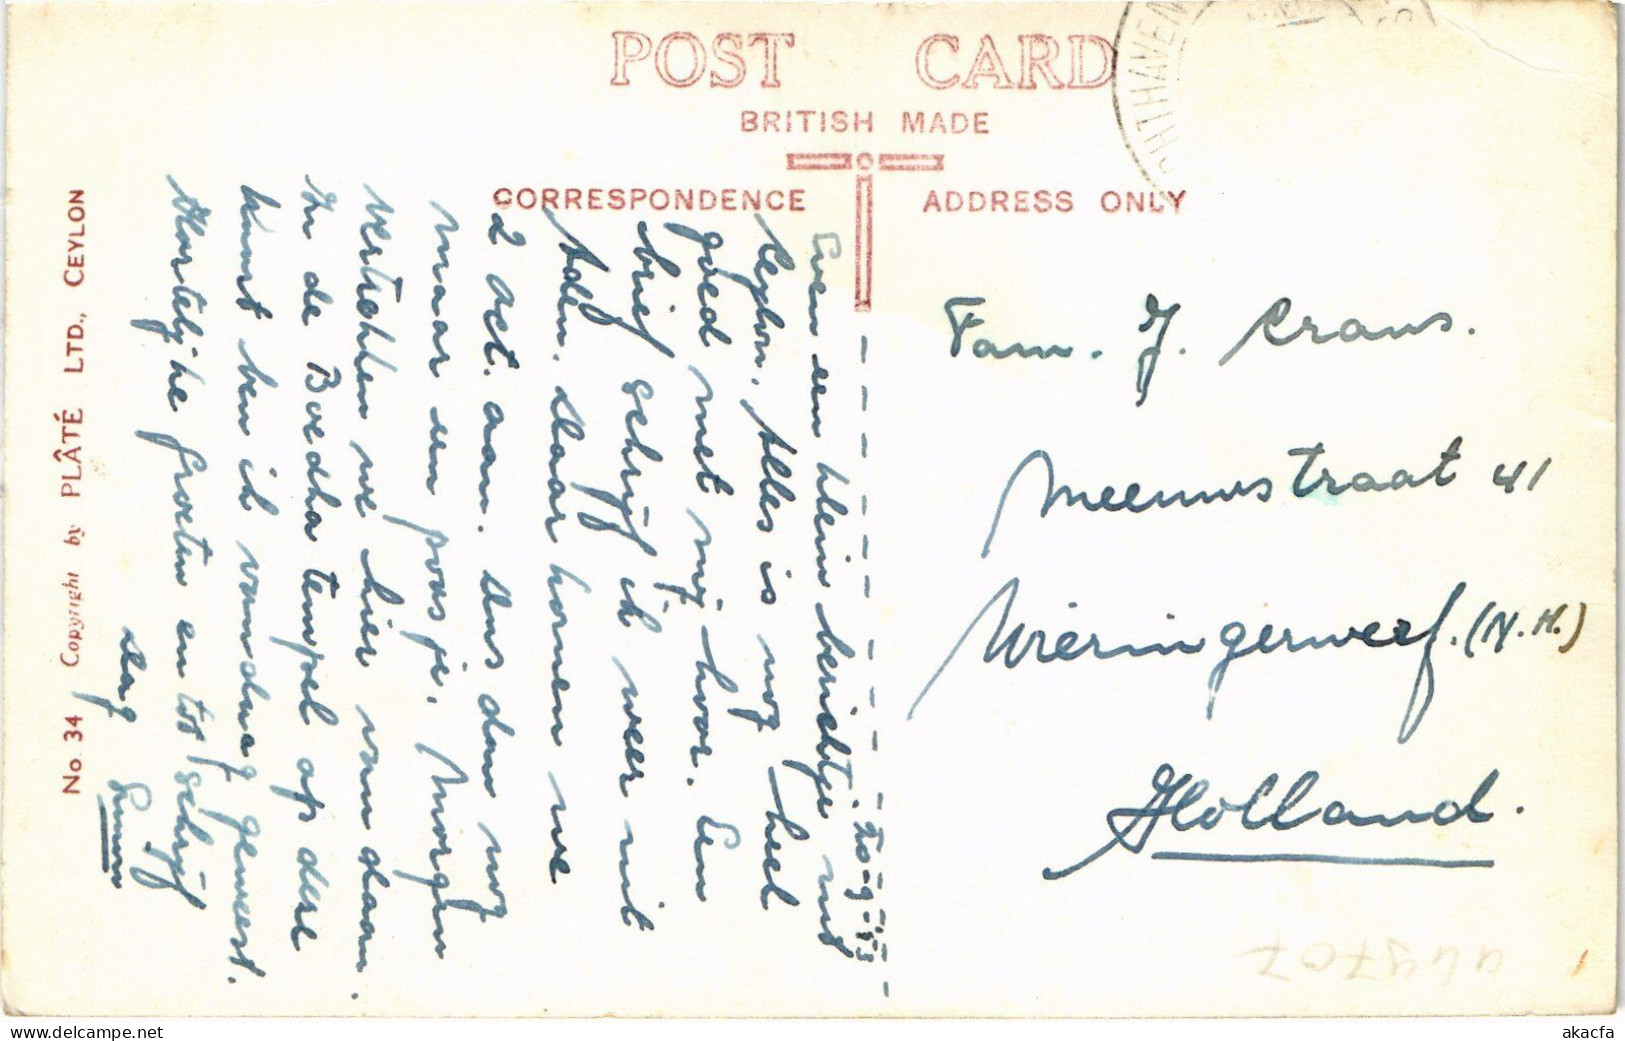 POST CARD
BRITISH MADE
CORRESPONDENCE
ADDRESS ONLY
SCHIPHAVEN
20-9-'53
Even een klein berichtje uit
Ceylon. Alles is nog heel
goed met mij hoor. Een
brief schrijf ik weer uit
Aden. Daar komen we
2 oct. aan. Dus dan nog
maar een poosje. Morgen
vertrekken we hier vandaan.
In de Boedha tempel op deze
kunst ben ik vandaag geweest.
Hartelijke groeten en tot schrijf
dag
Fam. J. Kraus.
Meeuwstraat 41
Wieringerwerf. (N.H.)
Holland.
No. 34 Copyright by PLÂTÉ LTD., CEYLON
449707
akacfa